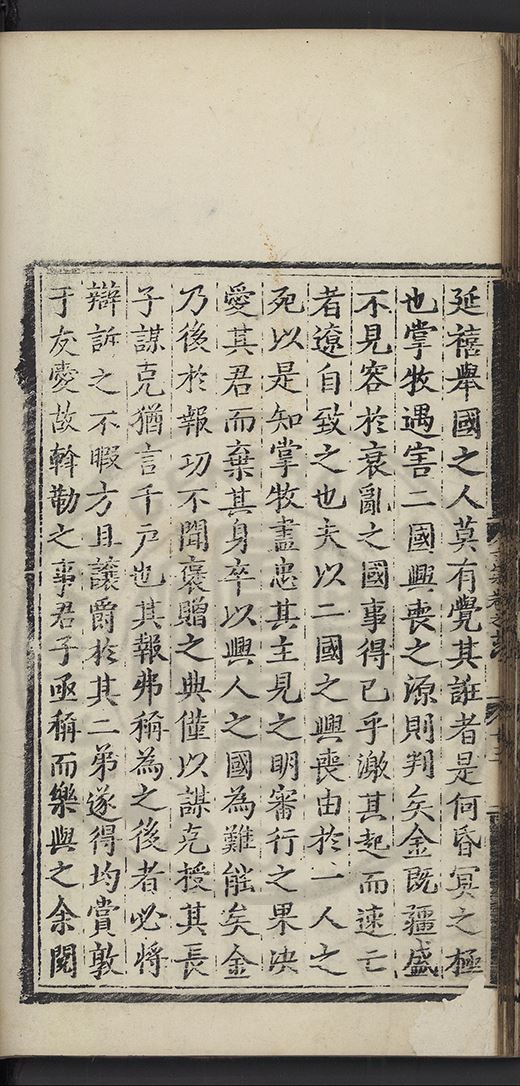 延禧舉國之人莫有覺其誑者是何昏冥之極
也掌牧遇害二國興喪之源則判矣金既彊盛
不見容於衰亂之國事得已乎激其起而速亡
者遼自致之也夫以二國之興喪由於一人之
死以是知掌牧盡忠其主見之明審行之果决
愛其君而棄其身卒以興人之國為難能矣金
乃後於報功不聞褒贈之典僅以謀克授其長
子謀克猶言千戶也其報弗稱為之後者必將
辯訴之不暇方且讓爵於其二弟遂得均賞敦
于友愛故斡勒之事君子亟稱而樂與之余閱